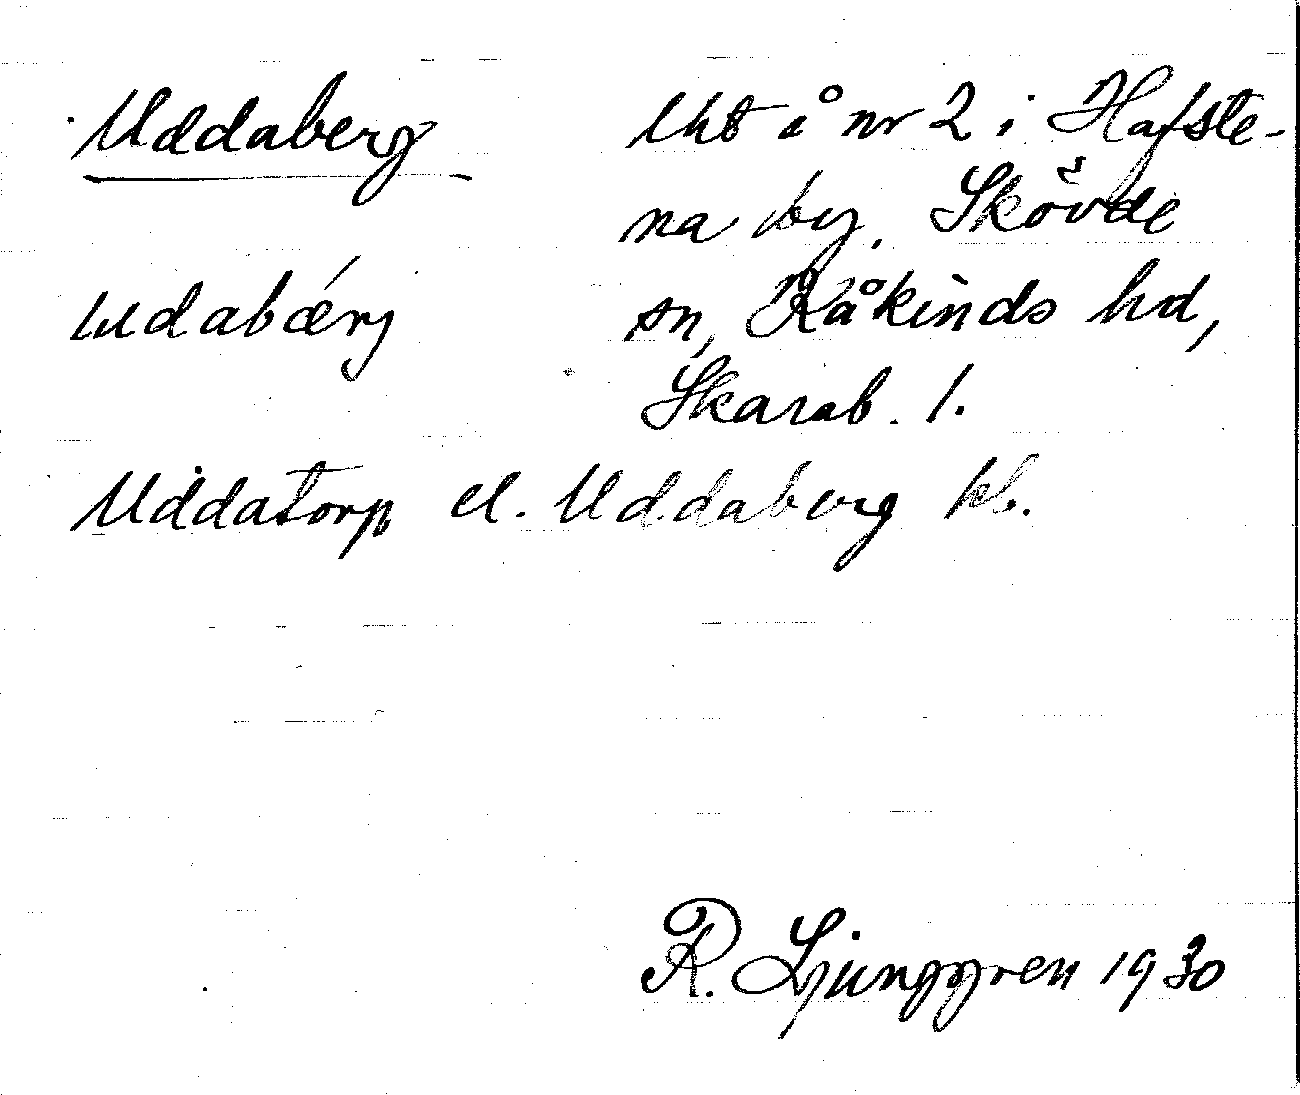 Uddaberg
Uht å nr 2 i Hafste-
na by, Skövde
udabǽrj
sn, Kåkinds hd,
Skarab. l.
Uddatorp el. Uddaberg kb.
R. Ljunggren 1930